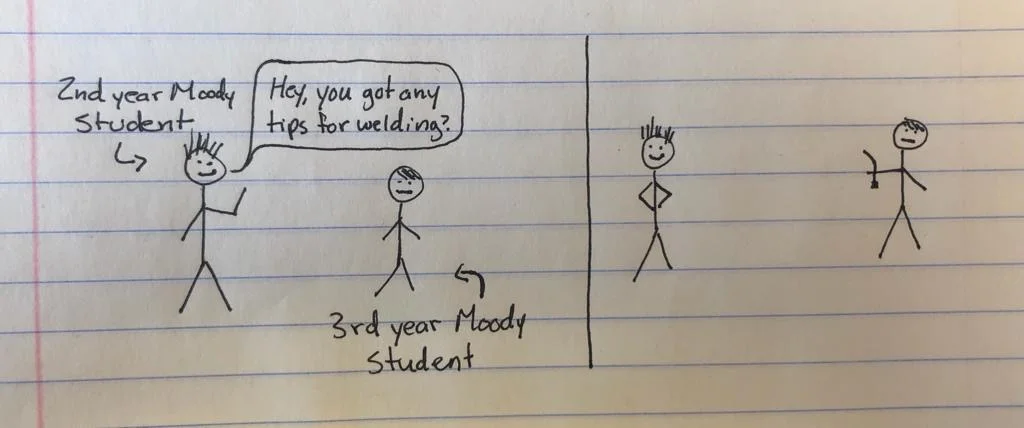 2nd year Moody
Student
Hey, you got any
tips for welding?
3rd year Moody
Student